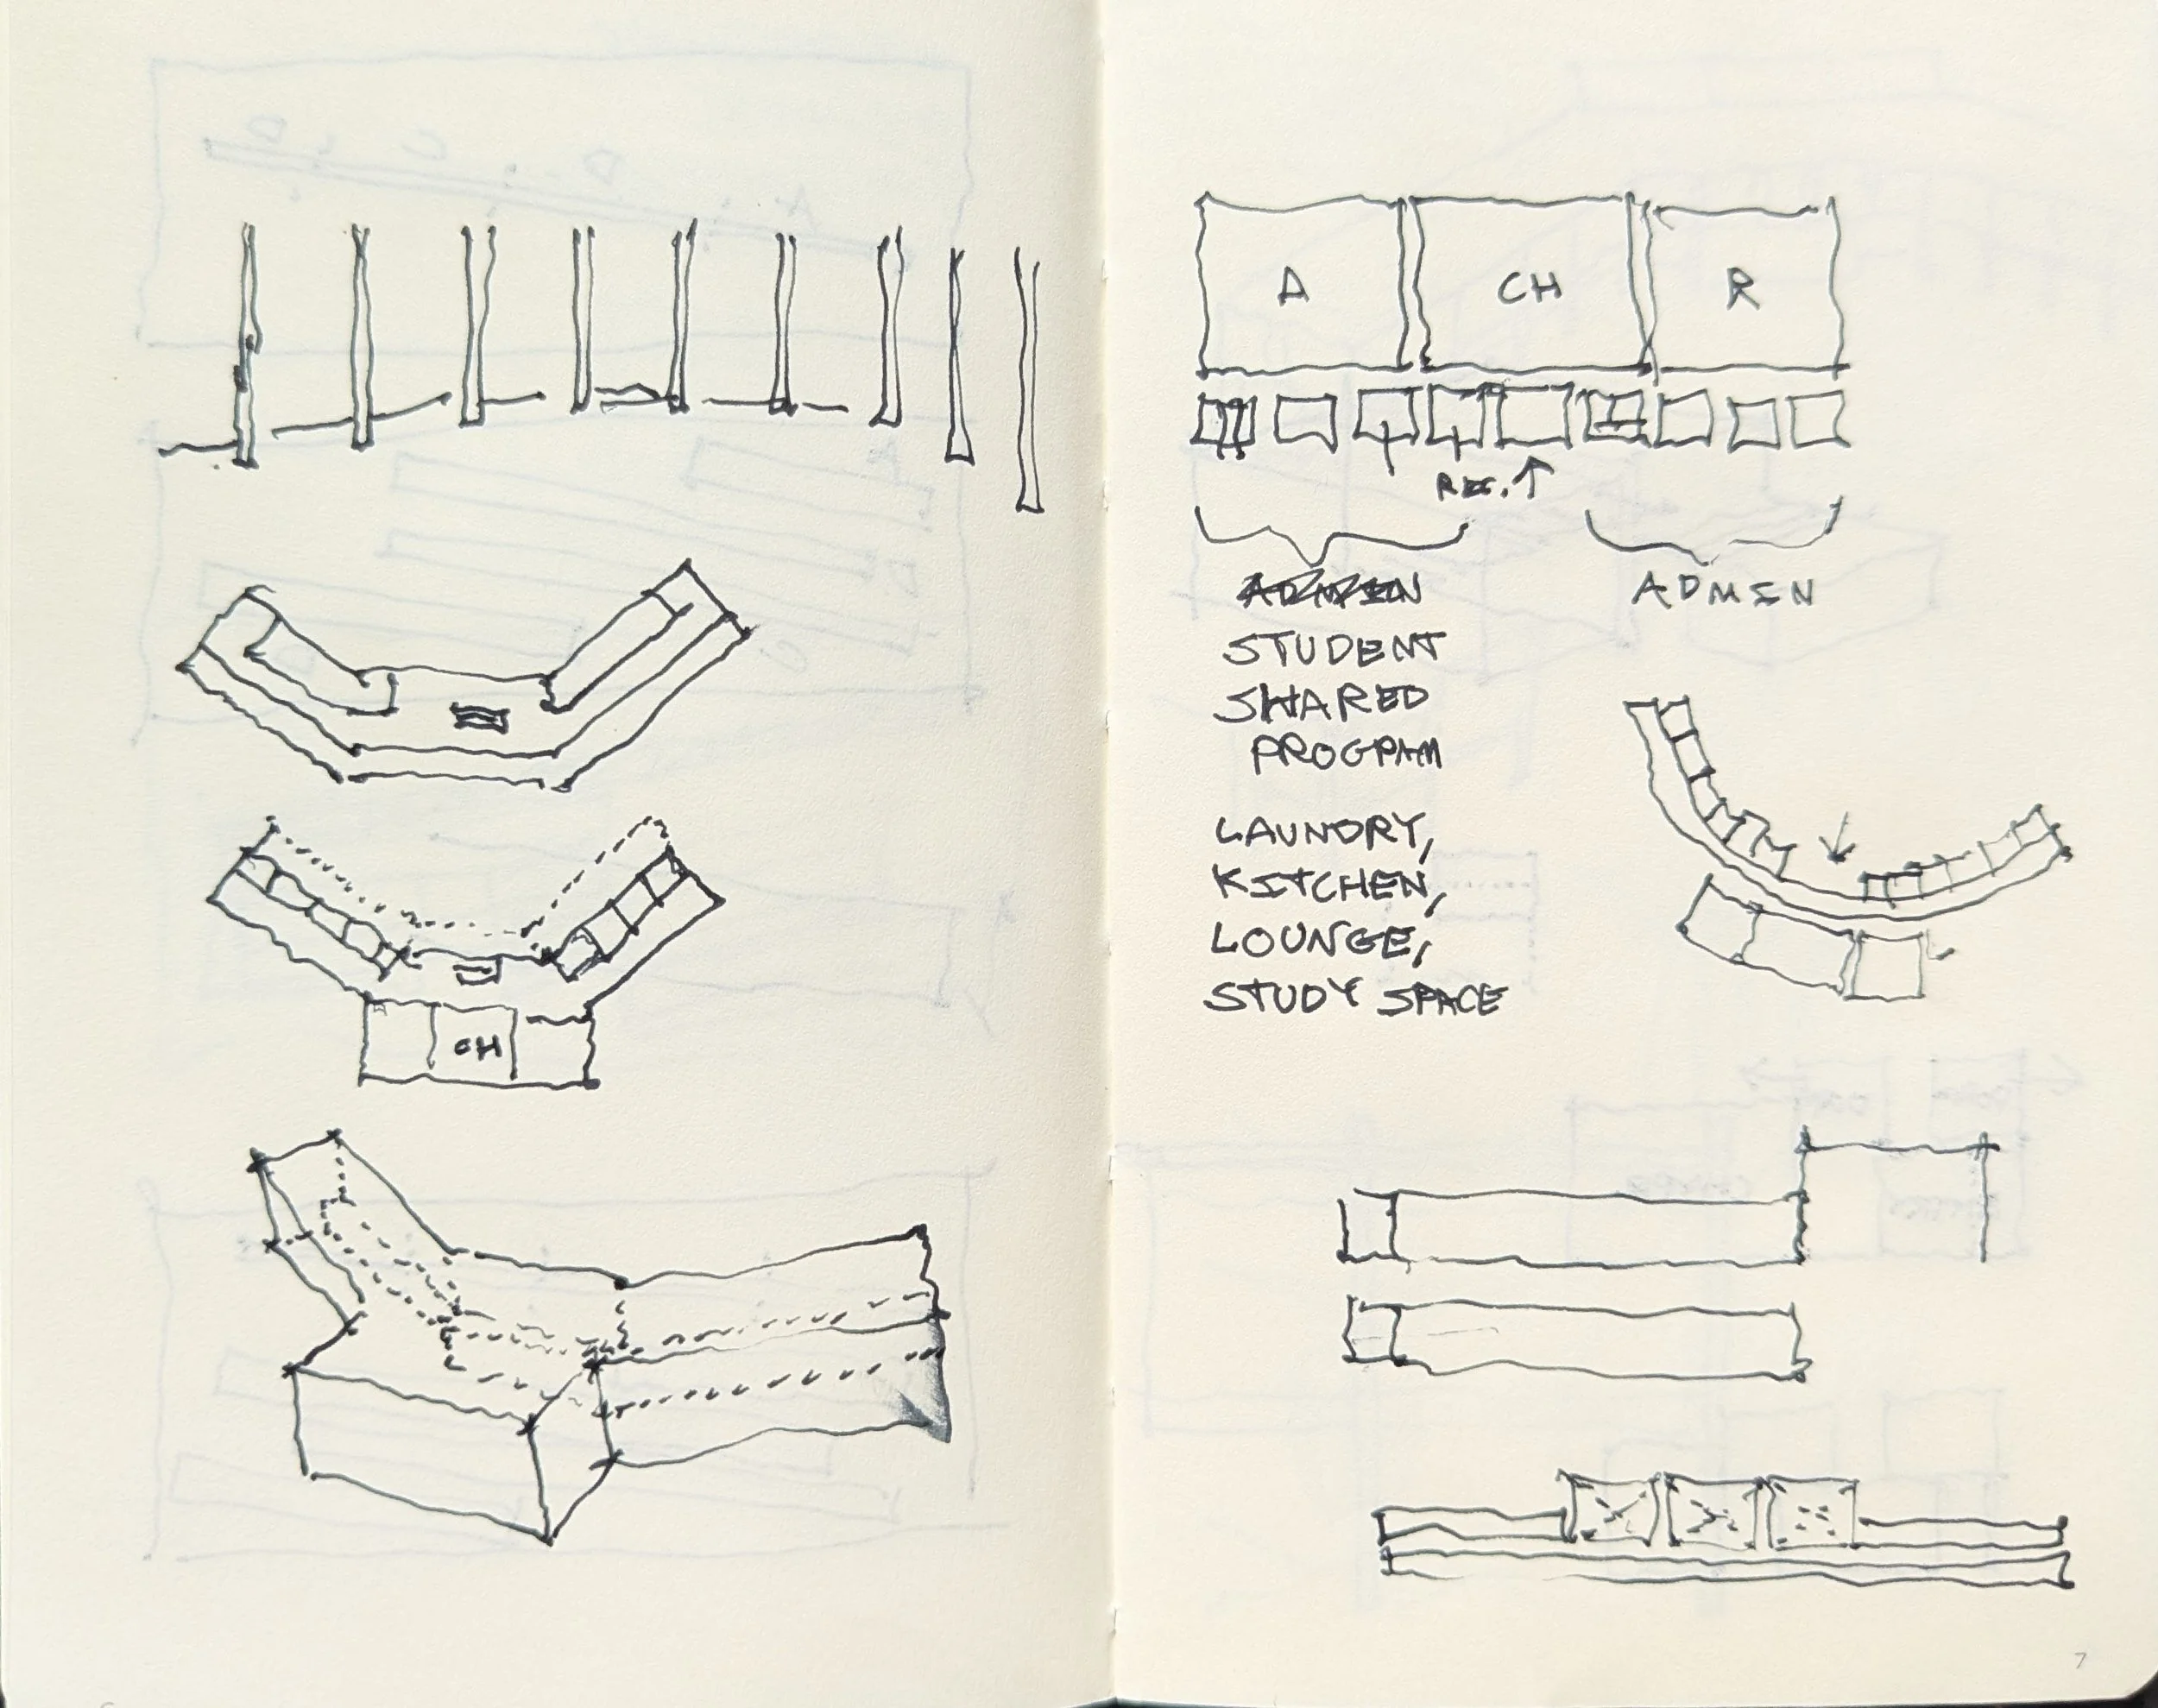 CH
A
CH
R
REC. ↑
ADMIN
ADMIN
STUDENT
SHARED
PROGRAM
LAUNDRY,
KITCHEN,
LOUNGE,
STUDY SPACE
7